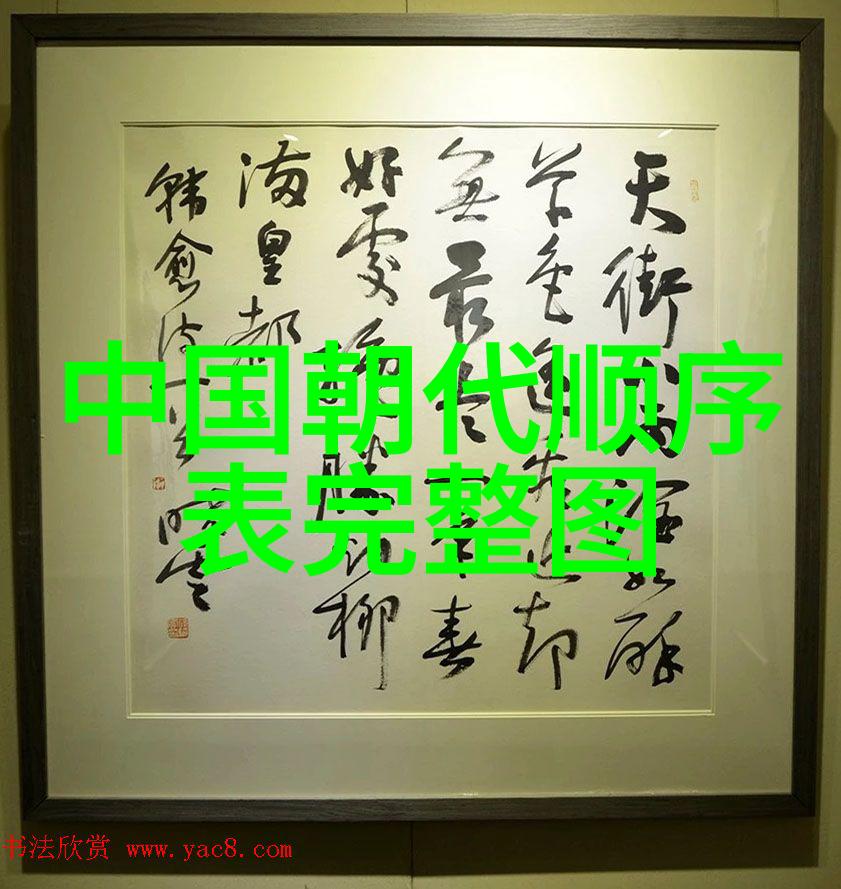 天街小雨潤如酥
草色遥看近却
無最是一年春
好處絶勝烟柳
滿皇都
韩愈诗一首
中国朝代顺序
表完整图
书法欣赏 www.yac8.com